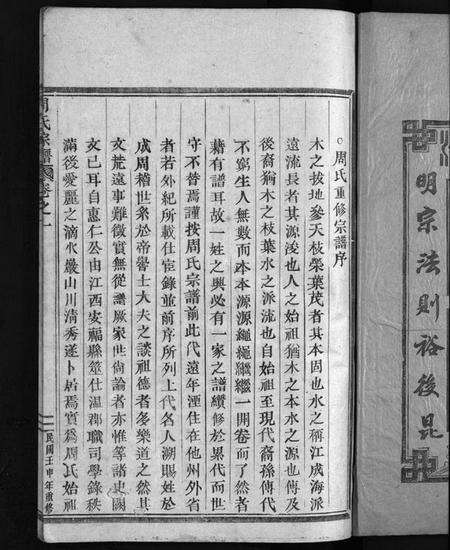 明宗法則裕後昆
周氏重修宗譜序
木之拔地參天枝榮葉茂者其本固也水之稱江成海派
遠流長者其源浚也人之始祖猶木之本水之源也傳及
後裔猶木之枝葉水之派流也自始祖至現代裔孫傳代
不窮生人無數而本本源源繩繩繼繼一開卷而了然者
藉有譜耳故一姓之興必有一家之譜纘修於累代而世
守不替焉謹按周氏宗譜前此代遠年湮住在他州外省
者若外紀所載仕宦錄並前序所列上代名人溯賜姓於
成周稽世系於帝嚳士大夫之談祖德者多樂道之然其
文荒遠事難徵實無從譜厥家世尚論者亦惟等諸史闕
文已耳自惠仁公由江西安福縣筮仕溫郡職司學錄秩
滿後愛麗之滴水巖山川清秀遂卜居焉實為周氏始祖
周氏宗譜 卷之一
民國壬申年重修